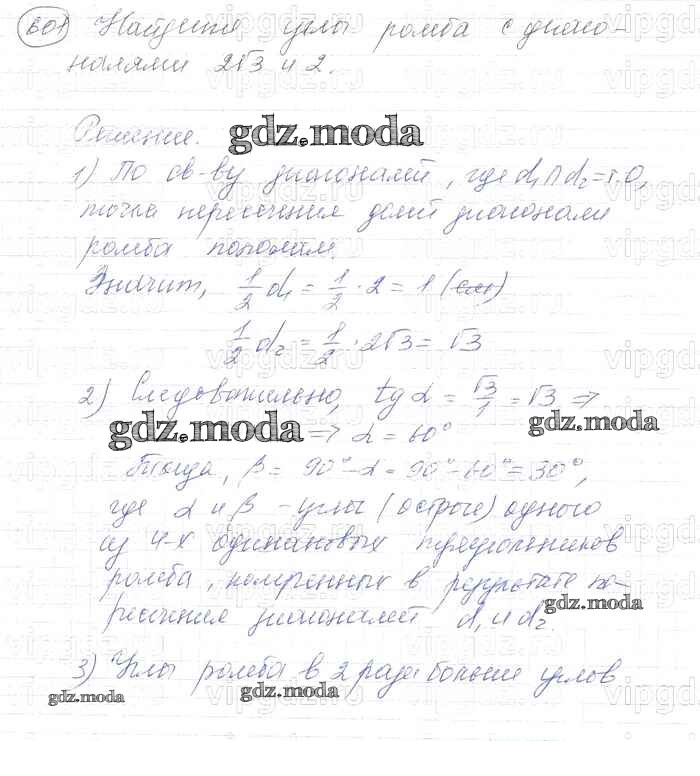 601 Найдите углы ромба с диаго-
налями 2√3 и 2.
Решение.
gdz.moda
1) По св-ву диагоналей, где d₁∩d₂=т.О,
точка пересечения делит диагонали
ромба пополам.
Значит, 1/2 d₁ = 1/2 · 2 = 1 (см)
1/2 d₂ = 1/2 · 2√3 = √3
2) Следовательно, tg α = √3/1 = √3 =>
gdz.moda
gdz.moda
=> α = 60°
Тогда, β = 90° - α = 90° - 60° = 30°,
где α и β - углы (острые) одного
из 4-х одинаковых треугольников
ромба, полученных в результате пе-
ресечения диагоналей d₁ и d₂.
gdz.moda
3) Углы ромба в 2 раза больше углов
gdz.moda
gdz.moda